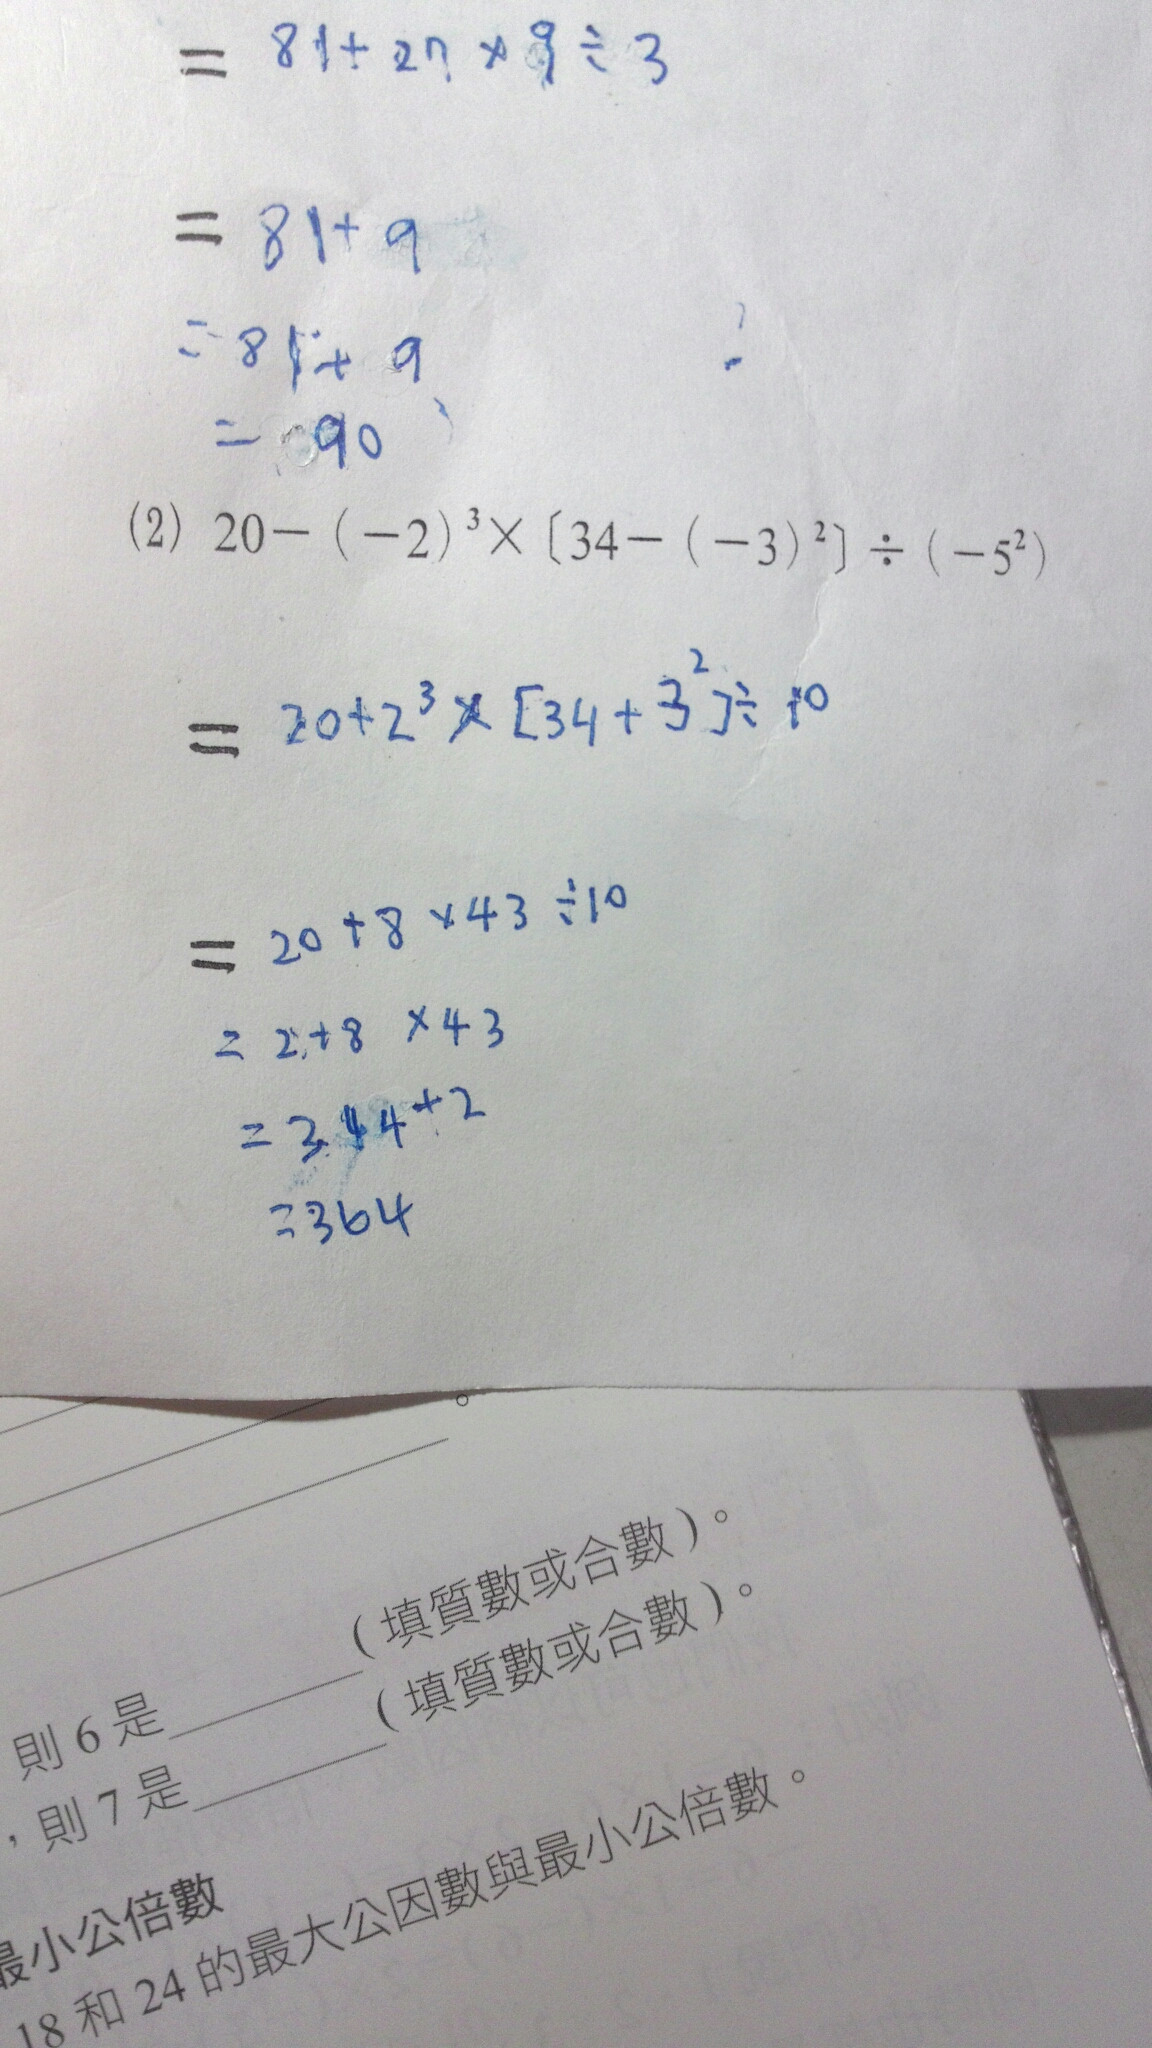 = 81+27×9÷3
= 81+9
= 81+9
= 90
(2) 20－(－2)³×〔34－(－3)²〕÷(－5²)
= 20+2³×[34+3²]÷10
= 20+8×43÷10
= 2+8×43
= 344+2
= 364
。
(填質數或合數)。
則 6 是 (填質數或合數)。
，則 7 是
最小公倍數
18 和 24 的最大公因數與最小公倍數。